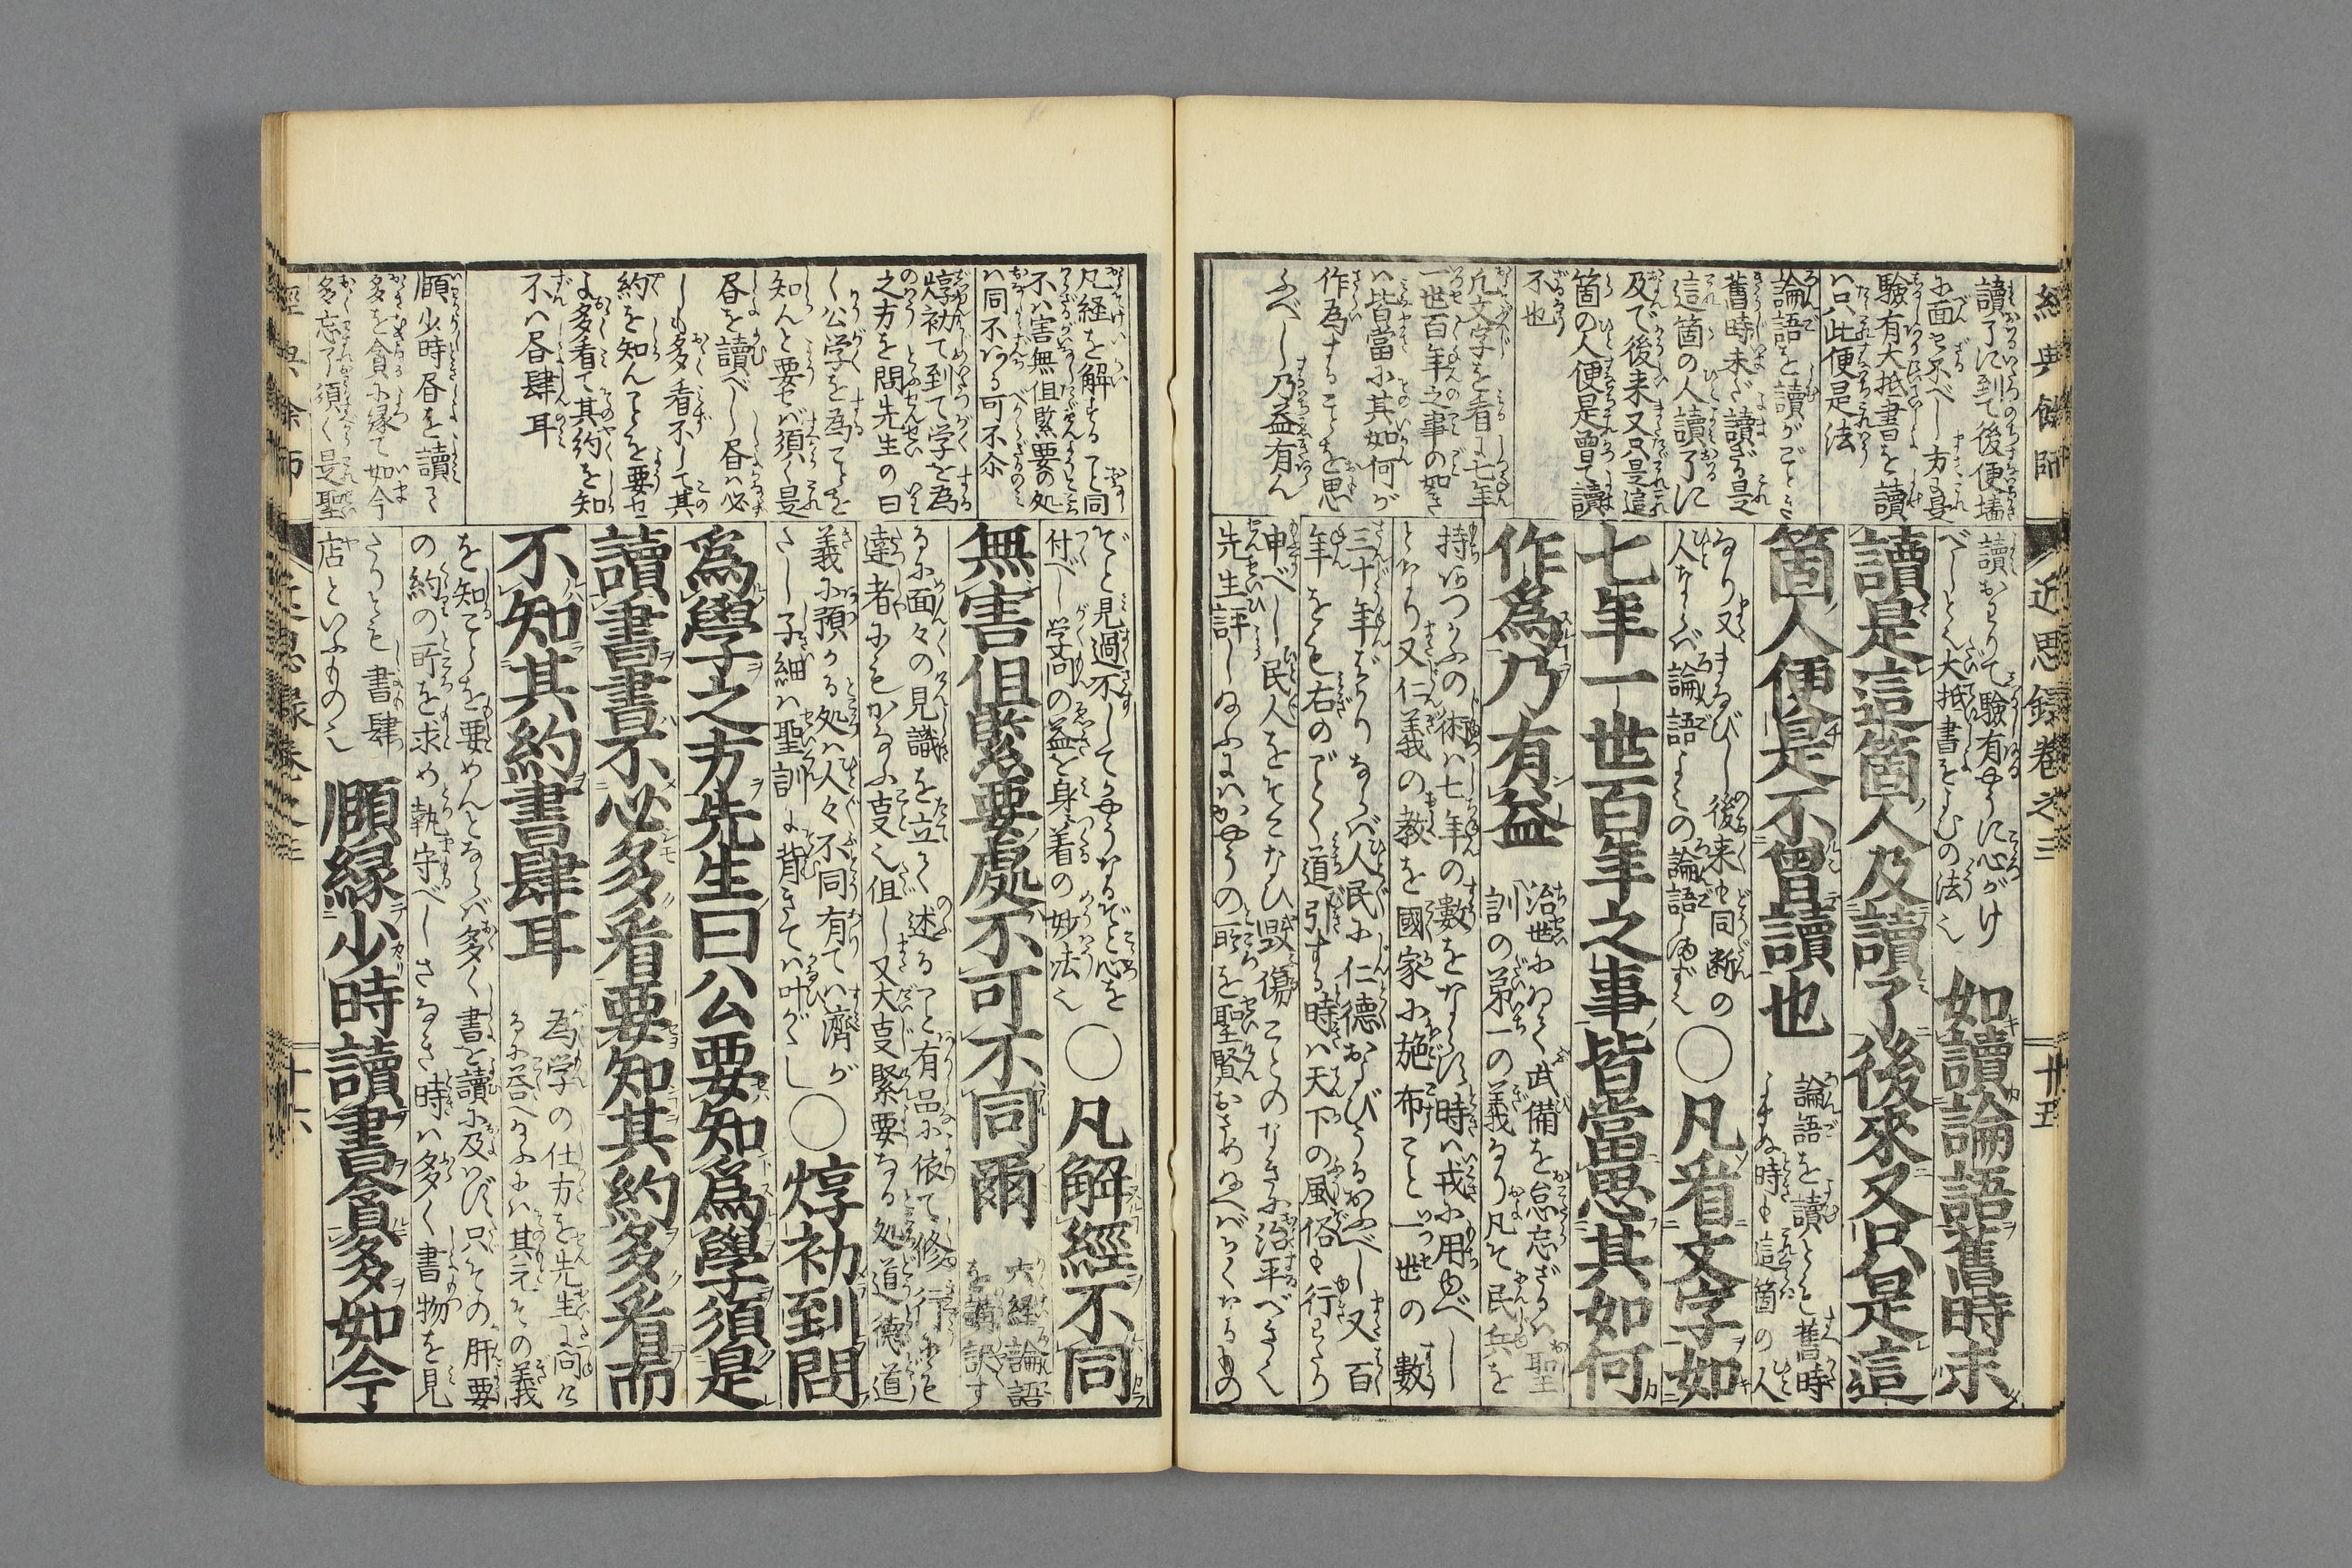 經典餘師
近思録卷之三
廿五
讀了に到て後便墻
に面せざるべし方是
驗有大抵書を讀
は只此便是法
論語を讀がごとき
舊時未だ讀ざる是
這箇の人讀了に
及で後来又只是這
箇の人便是曽て讀
不也
凡文字を看に七年
一世百年之事の如き
は皆當に其如何が
作為することを思
ふべし乃益有ん
讀おわりて驗有やうに心がけ
べしとぞ大抵書をよむの法也
如讀論語舊時未
讀是這箇人及讀了後來又只是這
箇人便是不曾讀也
論語を讀とも舊時
よまぬ時も這箇の人
なり又まなびし後来も同断の
人ならば論語よみの論語しらず也
〇凡看文字如
七年一世百年之事皆當思其如何
作爲乃有益
治世にわく武備を怠忘ざるは聖
訓の第一の義なり凡そ民兵を
持つの術は七年の數をならはし時は戒に用ゆべし
とあり又仁義の教を國家に施布こと一世の數
三十年ばかりならば人民に仁徳およびうるおふべし又百
年をも右のごとく道引する時は天下の風俗も行わたり
申べし民人をそこなひ毀傷ことのなきに治平べきと
先生評し給ふにかやうの所を聖賢おさめ給へば
凡経を解すること同
不は害無但緊要の処
は同不ある可不尒
焞初て到て学を為
之方を問先生の曰
く公学を為ことを
知んと要せば須く是
昼を讀べし昼は必
しも多看不して其
約を知んことを要せ
よ多看て其約を知
不は昼肆耳
頤少時昼を讀こと
多を貪に縁て如今
多忘了須く是聖
ぞと見過不してやうなるぞと心を
付べし学問の益を身に着の妙法也
〇凡解經不同
無害但緊要處不可不同爾
六経論語
を講訳す
るに面々の見識を立て述ること有品に依て修行にも
達者にもかなふ事也但し又大事緊要なる処道徳道
義に預かる処は人々不同有ては濟が
たし子細は聖訓に背きては叶がたし
〇焞初到問
爲學之方先生曰公要知爲學須是
讀書書不必多看要知其約多看而
不知其約書肆耳
為学の仕方を先生に問け
るに答へ給ふには其元その義
を知ことを要めんとならば多く書を讀に及ばず只その肝要
の約の所を求め執守べしさなき時は多く書物を見
たりとも書肆
店といふものゝ也
頤縁少時讀書貪多如今
經典余師
近思録卷之三
廿六